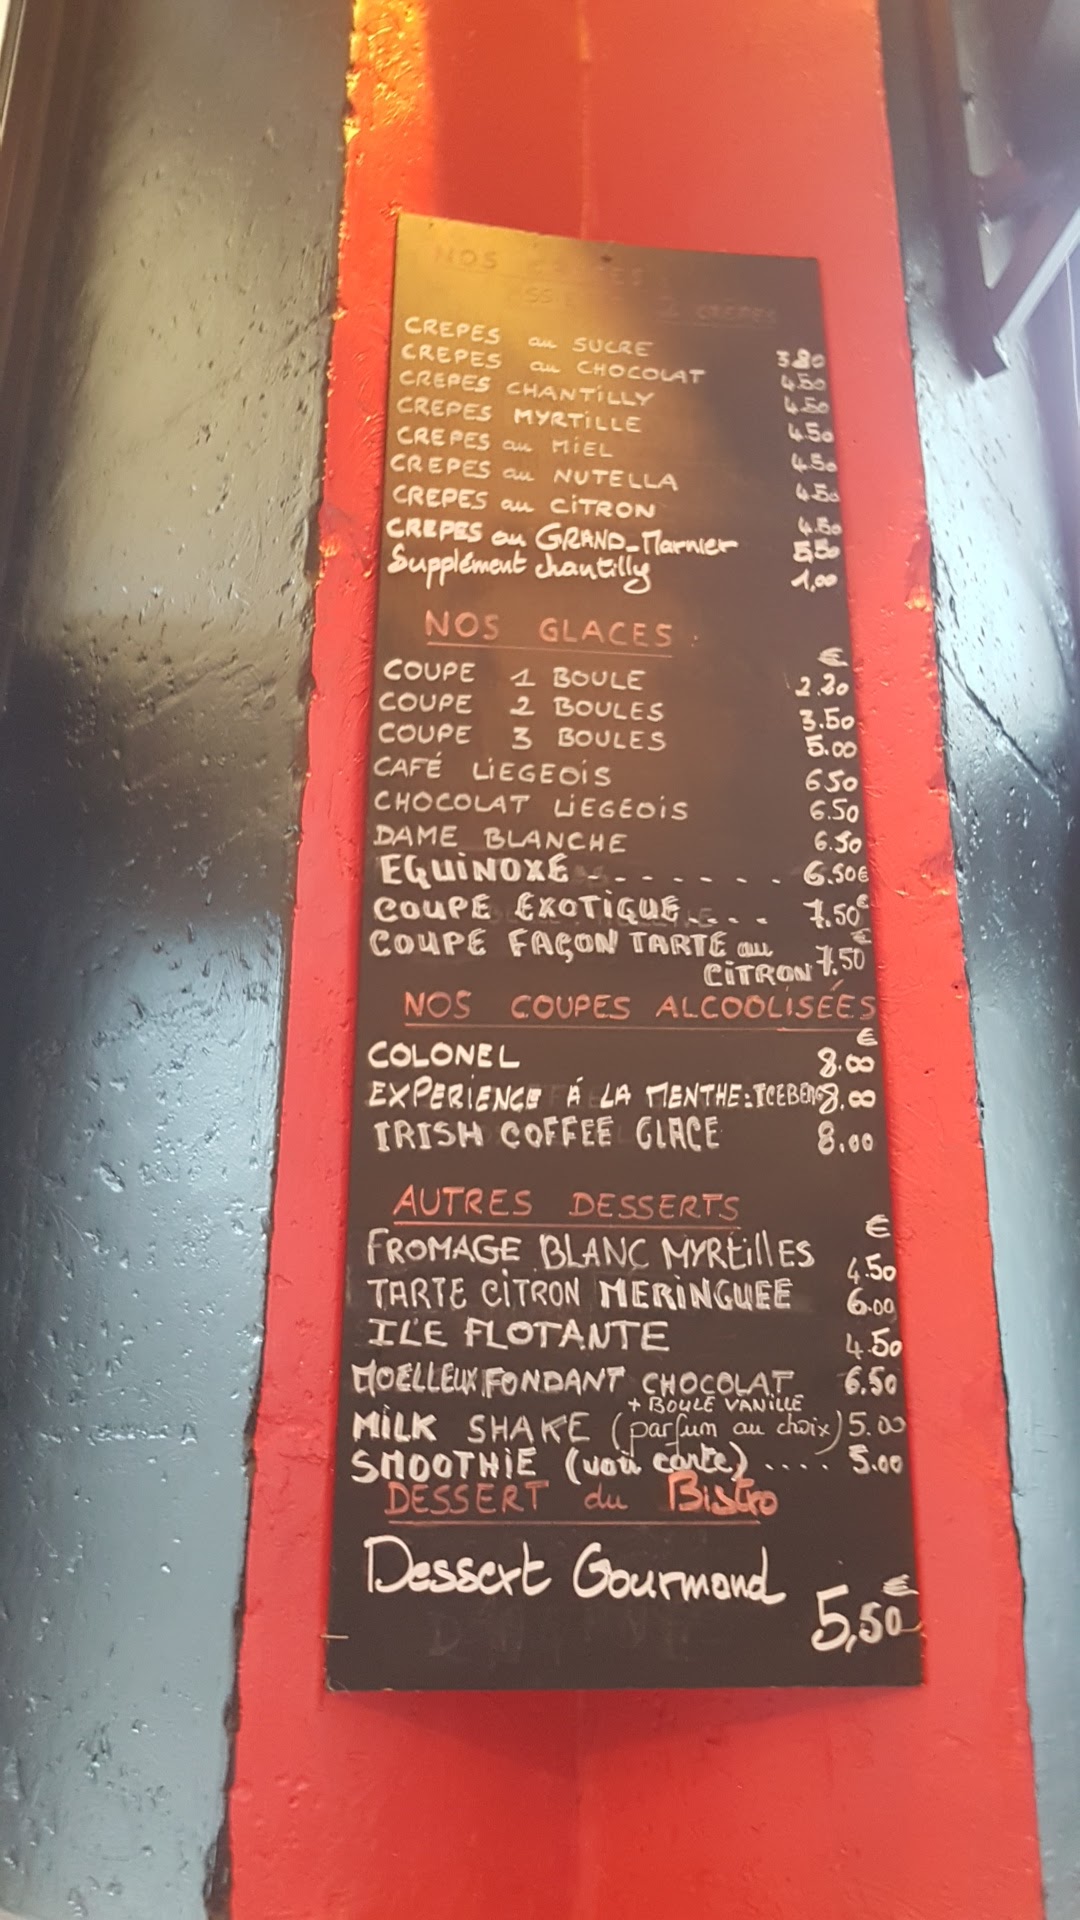 NOS CREPES
2 CREPES
CREPES au SUCRE 3.80
CREPES au CHOCOLAT 4.50
CREPES CHANTILLY 4.50
CREPES MYRTILLE 4.50
CREPES au MIEL 4.50
CREPES au NUTELLA 4.50
CREPES au CITRON 4.50
CREPES au GRAND-Marnier 5,50
Supplément chantilly 1,00
NOS GLACES :
€
COUPE 1 BOULE 2.20
COUPE 2 BOULES 3.50
COUPE 3 BOULES 5.00
CAFÉ LIEGEOIS 6.50
CHOCOLAT LIEGEOIS 6.50
DAME BLANCHE 6.50
EQUINOXE - - - - - - - 6.50€
COUPE EXOTIQUE.... 7.50€
COUPE FAÇON TARTE au
CITRON 7.50€
NOS COUPES ALCOOLISÉES
€
COLONEL 8.00
EXPERIENCE À LA MENTHE: ICEBERG 8.00
IRISH COFFEE GLACE 8.00
AUTRES DESSERTS
€
FROMAGE BLANC MYRTILLES 4.50
TARTE CITRON MERINGUEE 6.00
ILE FLOTANTE 4.50
MOELLEUX FONDANT CHOCOLAT 6.50
+ BOULE VANILLE
MILK SHAKE (parfum au choix) 5.00
SMOOTHIE (voir carte) .... 5.00
DESSERT du Bistro
Dessert Gourmand
5,50€